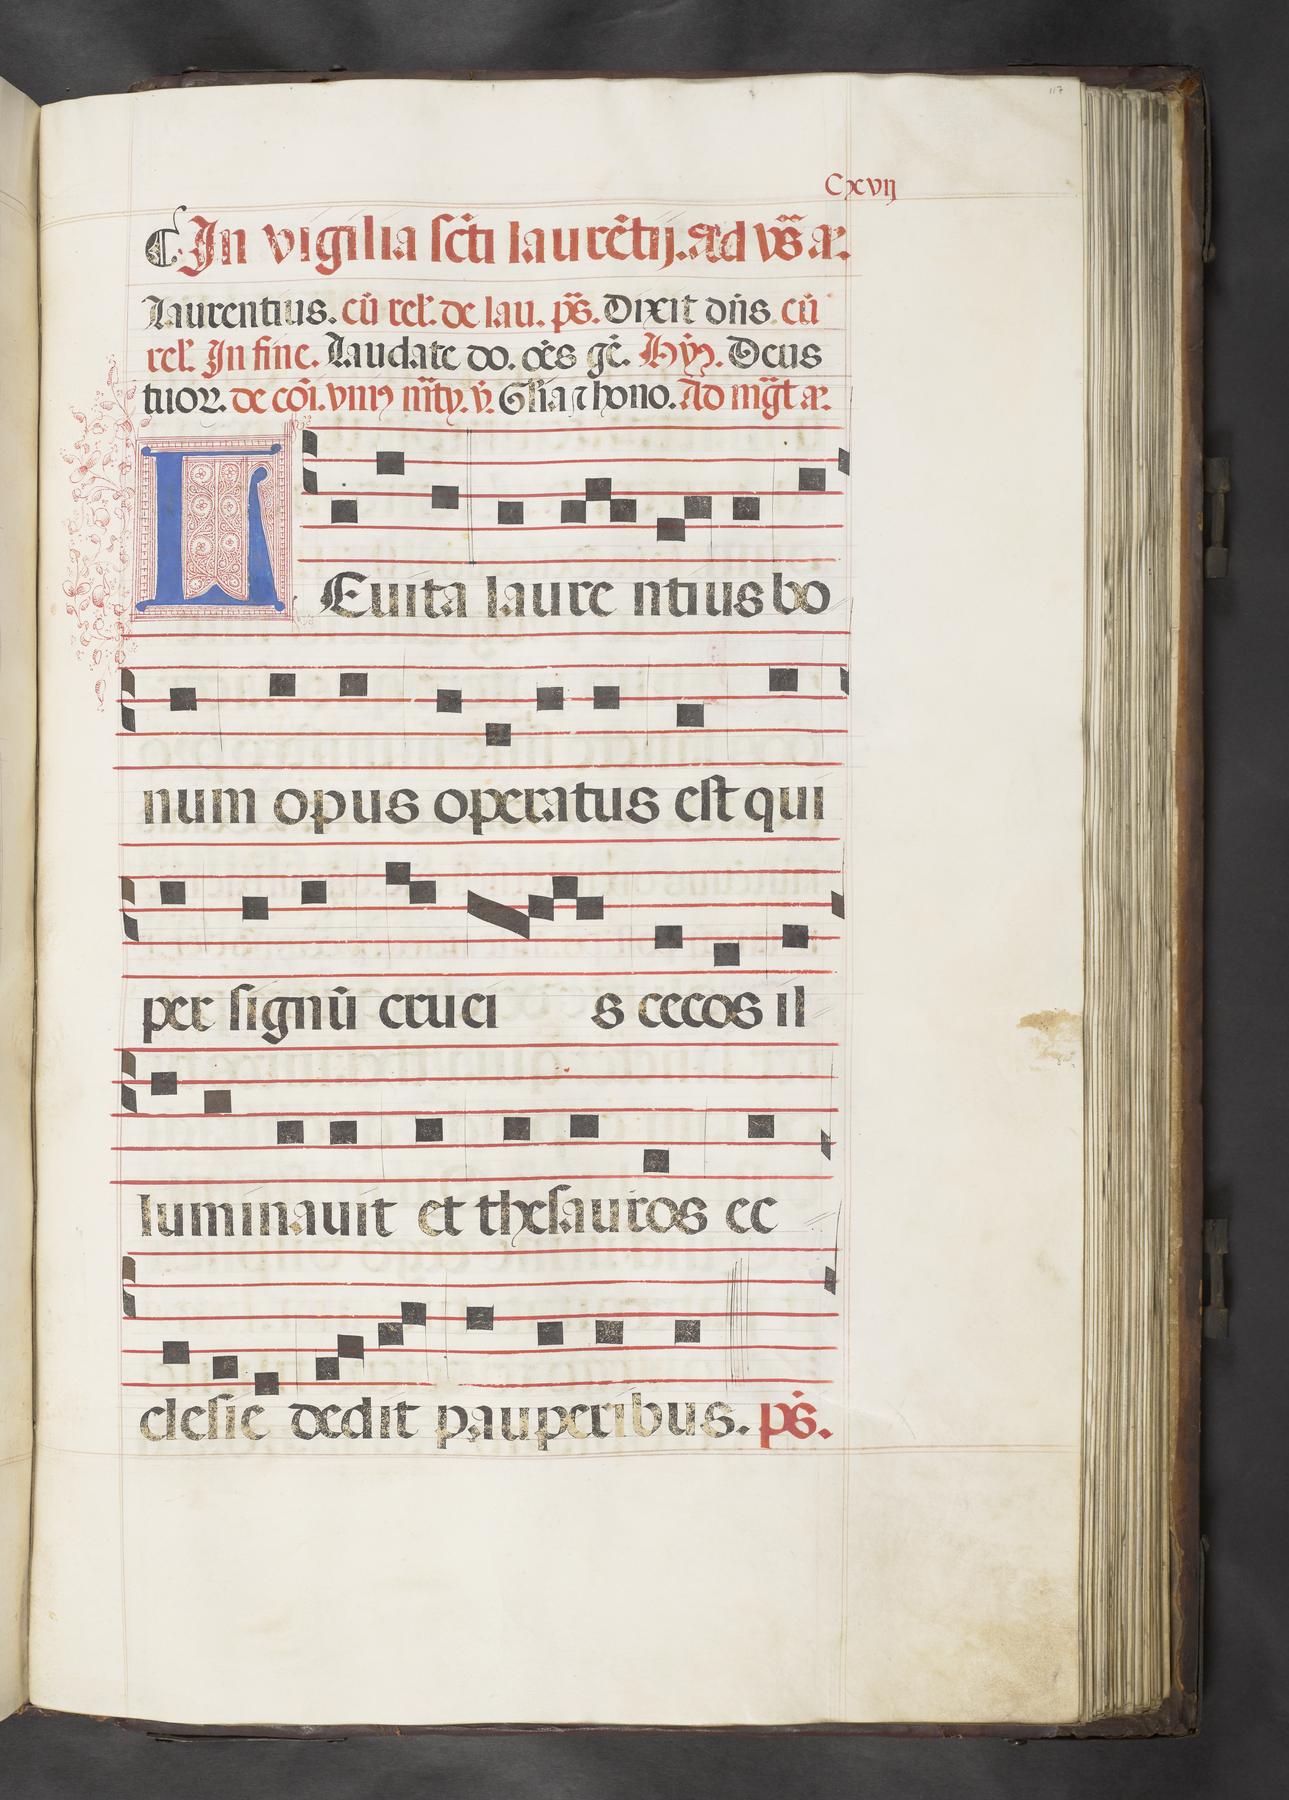 117
Cxvij
In vigilia sc̄ti laurētij. Ad vs̄ a.
Laurentius. cū rel'. de lau. ps̄. Dixit dn̄s cū
rel'. In fine. Laudate do. oēs gē. Hyͫ. Deus
tuoꝝ. de cōi. vniꝰ mr̄ty. v̄. Gl̄ia ⁊ hono. Ad mḡt a.
LEuita laure ntius bo
num opus operatus est qui
per signū cruci s cecos il
luminauit et thesauros ec
clesie dedit pauperibus. ps̄.